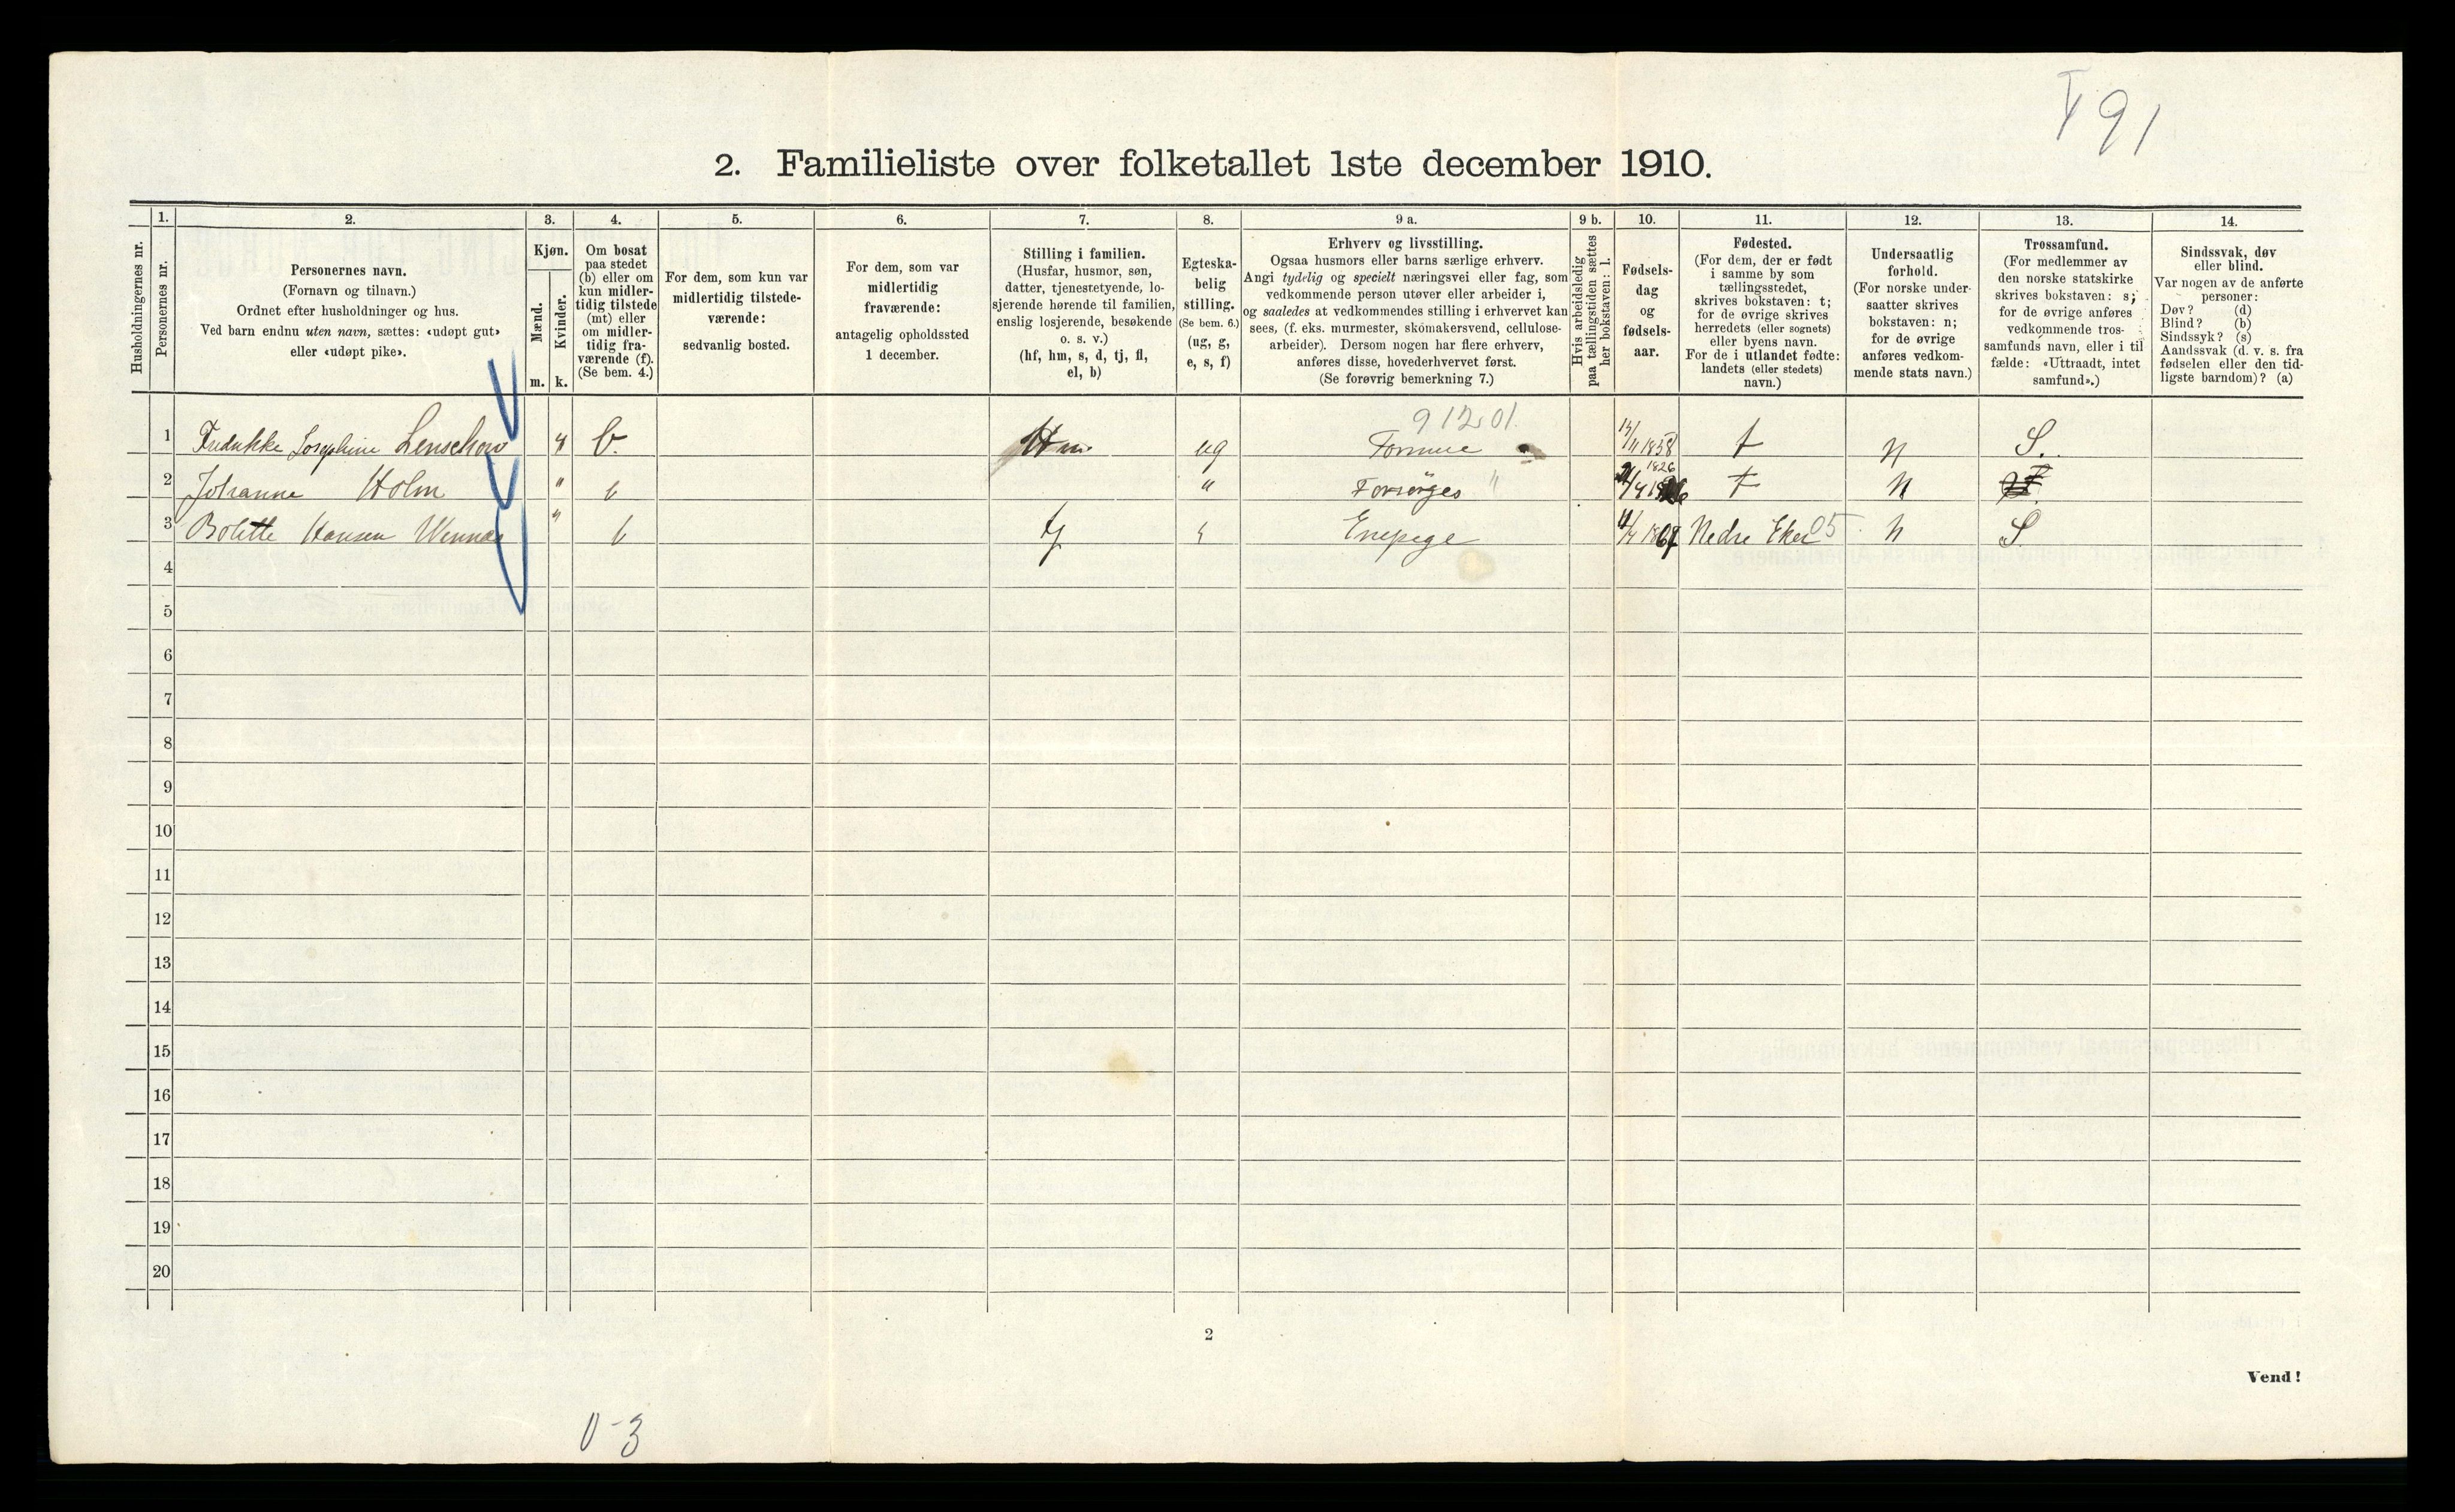 V 91
2. Familieliste over folketallet 1ste december 1910.
1. 2. 3. 4. 5. 6. 7. 8. 9 a. 9 b. 10. 11. 12. 13. 14.
Husholdningernes nr.
Personernes nr.
Personernes navn.
(Fornavn og tilnavn.)
Ordnet efter husholdninger og hus.
Ved barn endnu uten navn, sættes: «udøpt gut»
eller «udøpt pike».
Kjøn.
Mænd.
m.
Kvinder.
k.
Om bosat
paa stedet
(b) eller om
kun midler-
tidig tilstede
(mt) eller
om midler-
tidig fra-
værende (f).
(Se bem. 4.)
For dem, som kun var
midlertidig tilstede-
værende:
sedvanlig bosted.
For dem, som var
midlertidig
fraværende:
antagelig opholdssted
1 december.
Stilling i familien.
(Husfar, husmor, søn,
datter, tjenestetyende, lo-
sjerende hørende til familien,
enslig losjerende, besøkende
o. s. v.)
(hf, hm, s, d, tj, fl,
el, b)
Egteska-
belig
stilling.
(Se bem. 6.)
(ug, g,
e, s, f)
Erhverv og livsstilling.
Ogsaa husmors eller barns særlige erhverv.
Angi tydelig og specielt næringsvei eller fag, som
vedkommende person utøver eller arbeider i,
og saaledes at vedkommendes stilling i erhvervet kan
sees, (f. eks. murmester, skomakersvend, cellulose-
arbeider). Dersom nogen har flere erhverv,
anføres disse, hovederhvervet først.
(Se forøvrig bemerkning 7.)
Hvis arbeidsledig
paa tællingstiden sættes
her bokstaven: l.
Fødsels-
dag
og
fødsels-
aar.
Fødested.
(For dem, der er født
i samme by som
tællingsstedet,
skrives bokstaven: t;
for de øvrige skrives
herredets (eller sognets)
eller byens navn.
For de i utlandet fødte:
landets (eller stedets)
navn.)
Undersaatlig
forhold.
(For norske under-
saatter skrives
bokstaven: n;
for de øvrige
anføres vedkom-
mende stats navn.)
Trossamfund.
(For medlemmer av
den norske statskirke
skrives bokstaven: s;
for de øvrige anføres
vedkommende tros-
samfunds navn, eller i til
fælde: «Uttraadt, intet
samfund».)
Sindssvak, døv
eller blind.
Var nogen av de anførte
personer:
Døv? (d)
Blind? (b)
Sindssyk? (s)
Aandssvak (d. v. s. fra
fødselen eller den tid-
ligste barndom)? (a)
912.01.
1 Fredrikke Josephine Lenschow " b. Hm ug Formue 1838 t n S.
2 Johanne Holm " b " Forsørges " 1826 t n
3 Bolette Hansen Wennas " b tj " Enepige Nedre Eker 05 n S
4
5
6
7
8
9
10
11
12
13
14
15
16
17
18
19
20
2
Vend!
0-3